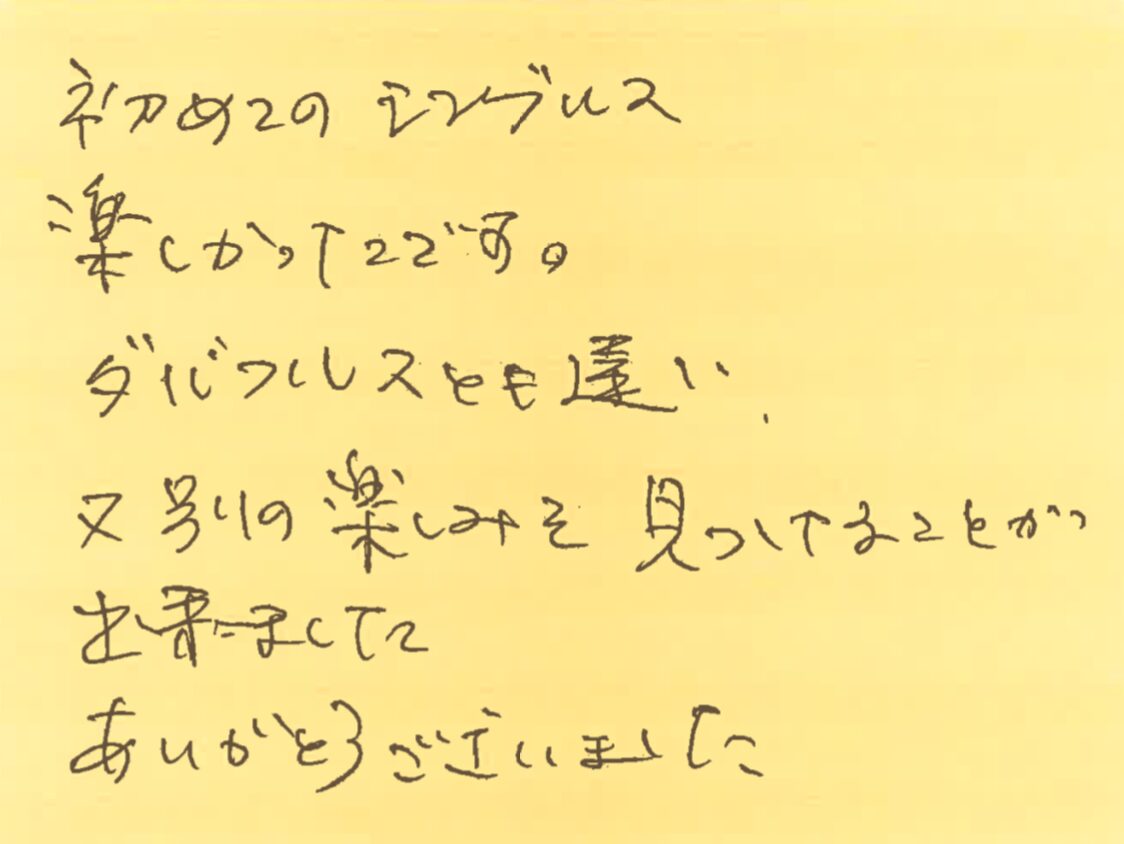 初めての シングルス
楽しかったです。
ダバブルスとも違い、
又別の楽しみを見つけることが
出来ました
ありがとうございました